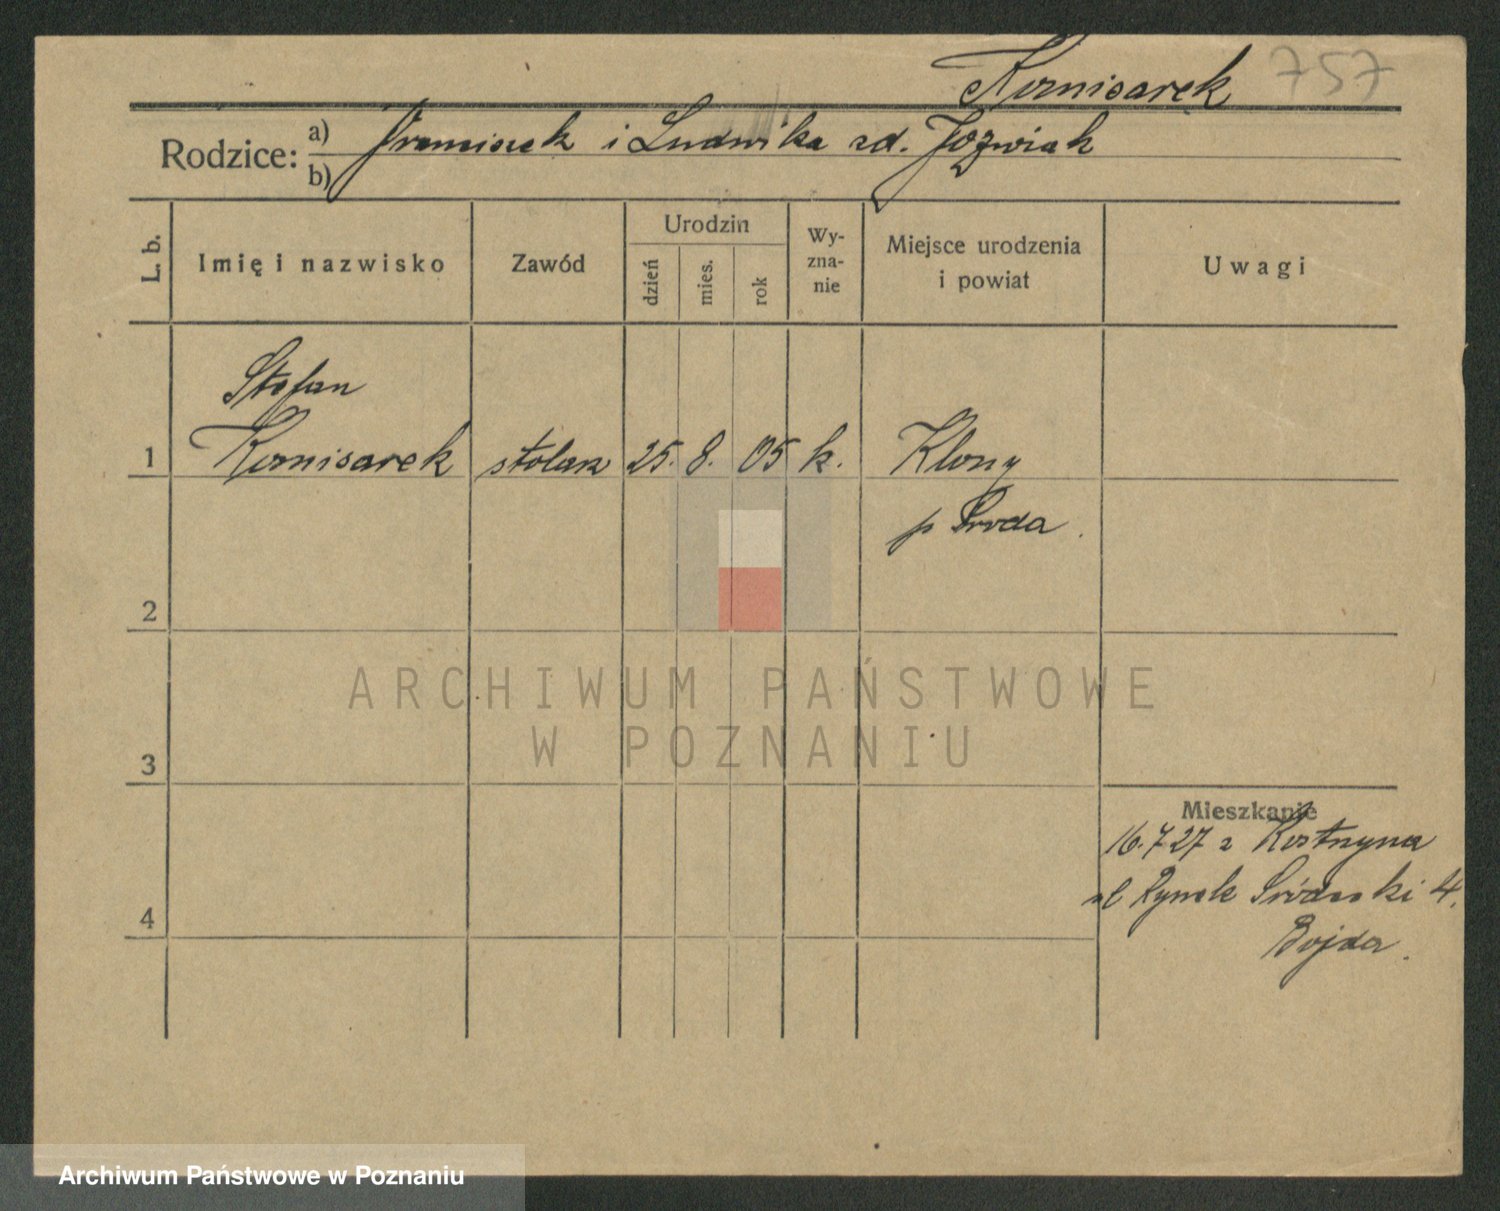 Kornisarek 757
Rodzice: a) Franciszek i Ludwika zd. Jozwiak
b)
L. b. Imię i nazwisko Zawód Urodzin dzień mies. rok Wy-zna-nie Miejsce urodzenia i powiat Uwagi
Stefan
1 Kornisarek stolarz 25. 8. 05 k. Klony
p Sroda.
2
ARCHIWUM PAŃSTWOWE
W POZNANIU
3
Mieszkanie
16.7 27 z Kostrzyna
ul Rynek Śródecki 4.
4
Bojda.
Archiwum Państwowe w Poznaniu